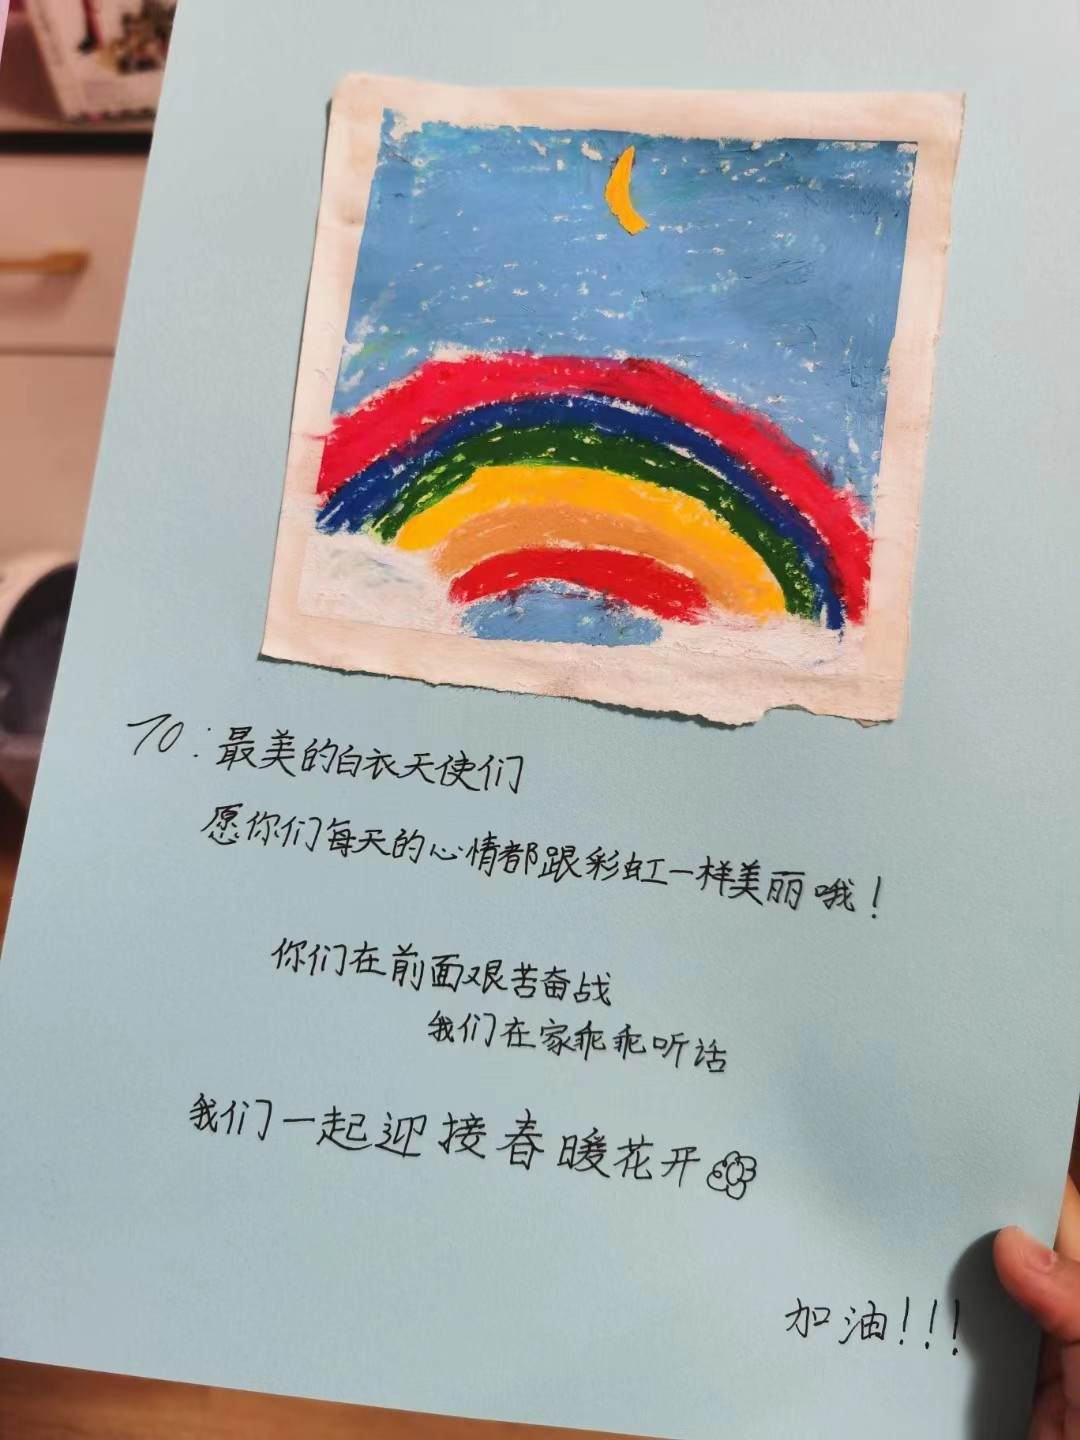 TO：最美的白衣天使们
愿你们每天的心情都跟彩虹一样美丽哦！
你们在前面艰苦奋战
我们在家乖乖听话
我们一起迎接春暖花开
加油！！！